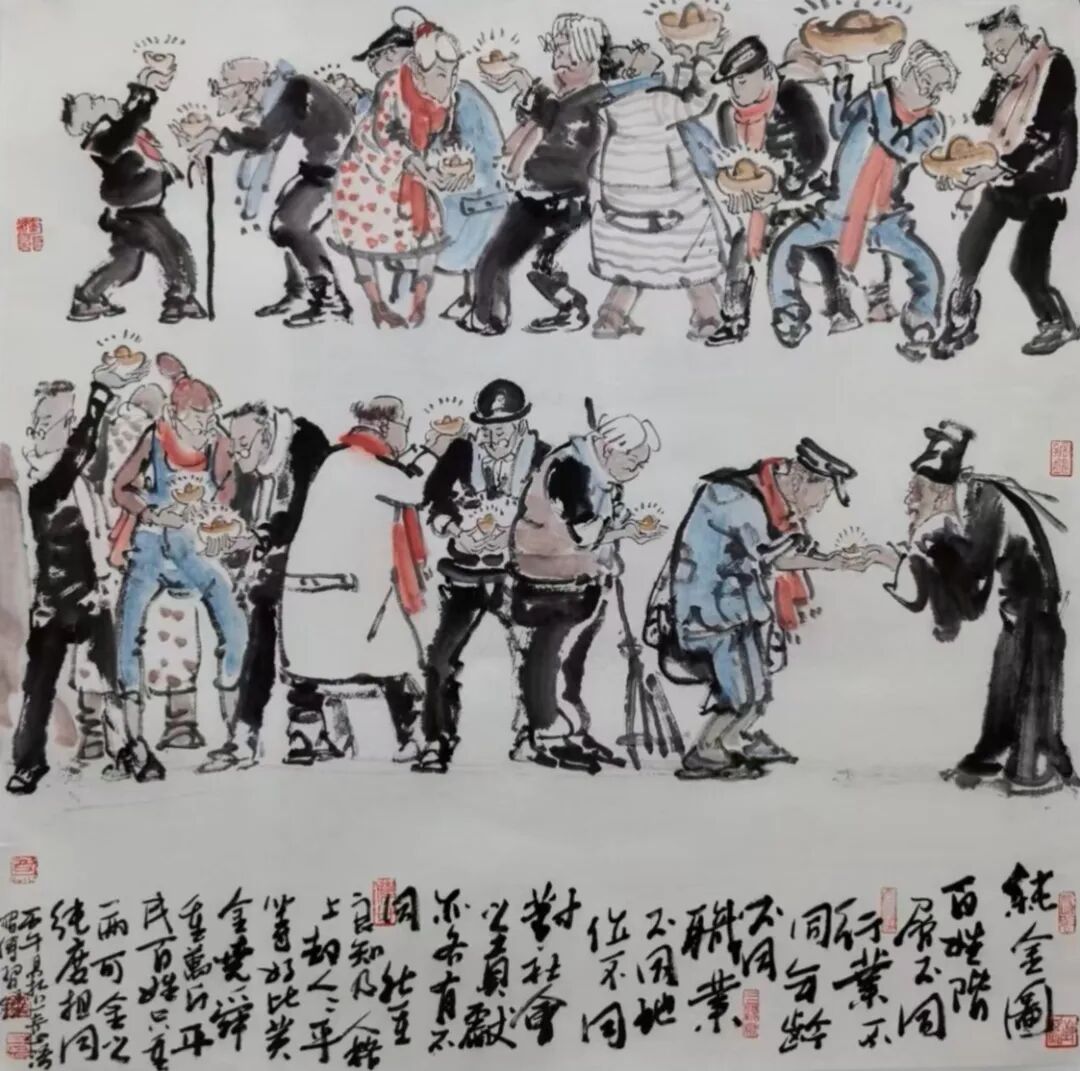 純金圖
百姓階
層不同
行業不
同年齡
不同
職業
不同地
位不同
對社會
之貢獻
亦各有不
同然在
良知及人格
上却人人平
等好比黃
金堯舜
重萬斤平
民百姓只重
兩可金之
純度相同
丙午